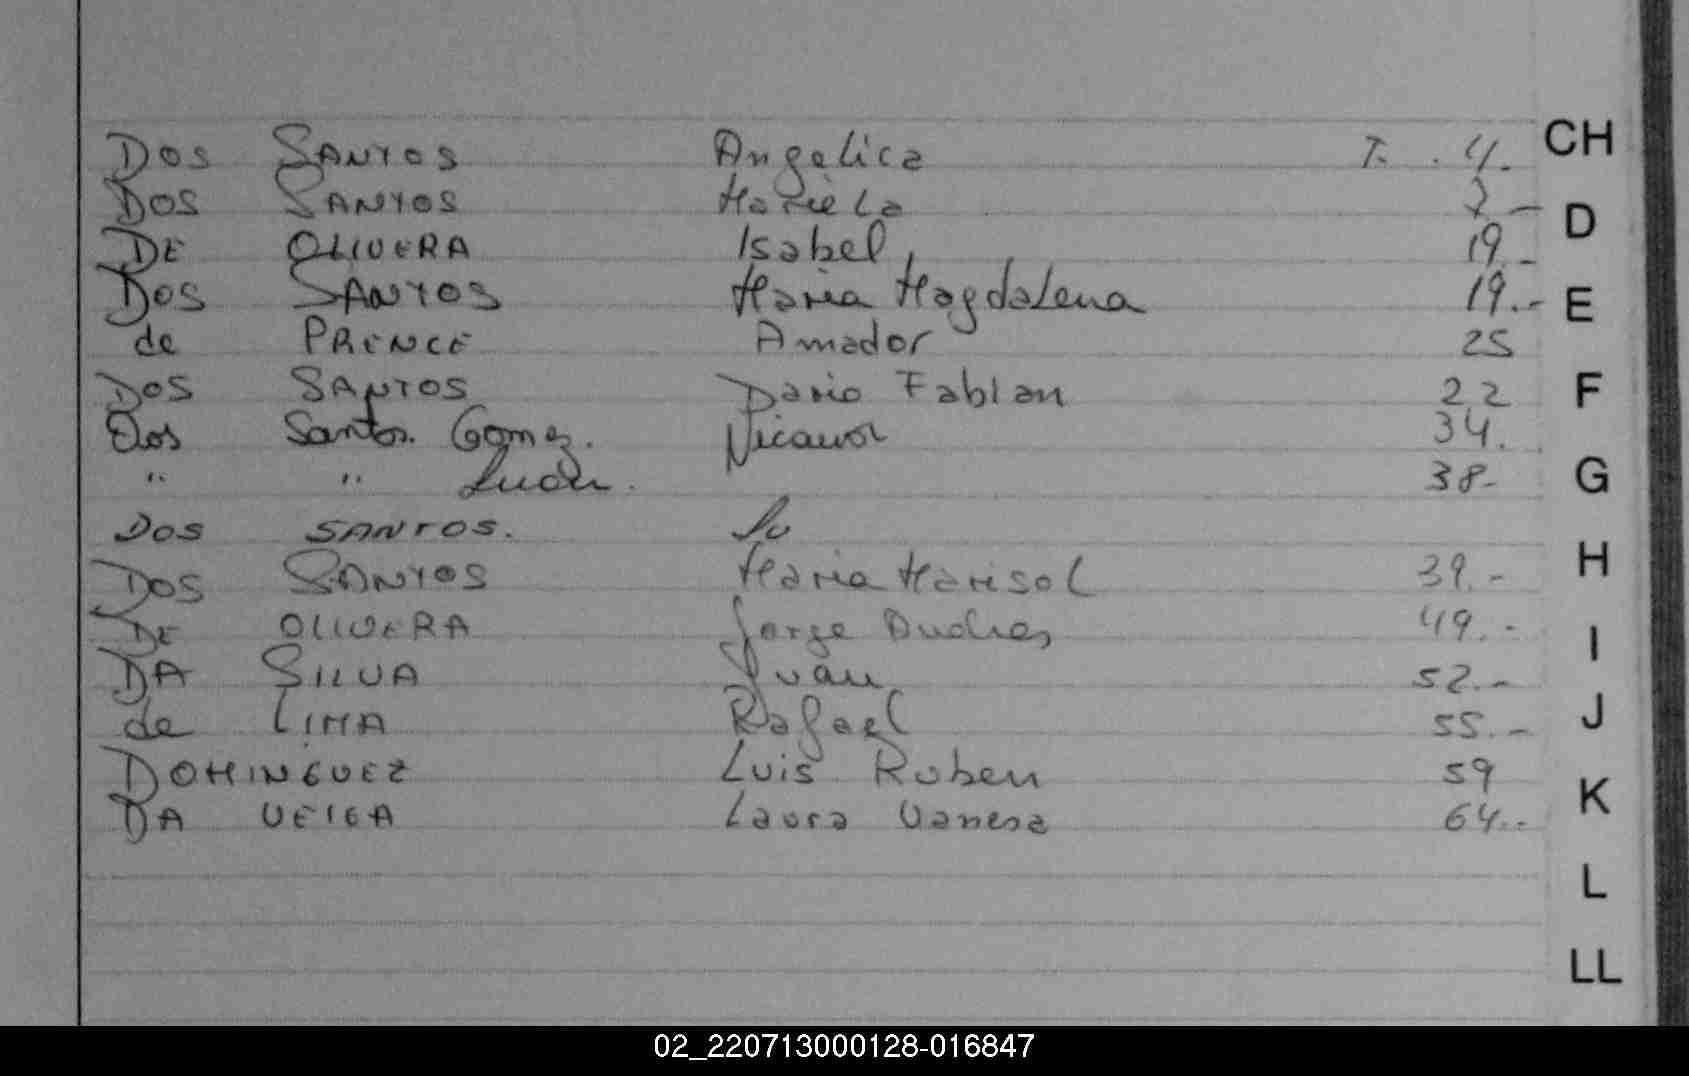 DOS SANTOS Angelica T. . 4. CH
DOS SANTOS Mariela 7.- D
DE OLIVERA Isabel 19.-
DOS SANTOS Maria Magdalena 19.- E
de PRENCE Amador 25
DOS SANTOS Dario Fabian 22 F
Dos Santos Gomez. Nicanor 34.
" " Juan. 38- G
DOS SANTOS.
DOS SANTOS Maria Marisol 39.- H
DE OLIVERA Jorge Andres 49.-
I
DA SILVA Juan 52.-
de LIMA Rafael 55.- J
DOMINGUEZ Luis Ruben 59
DA VEIGA Laura Vanesa 64.- K
L
LL
02_220713000128-016847